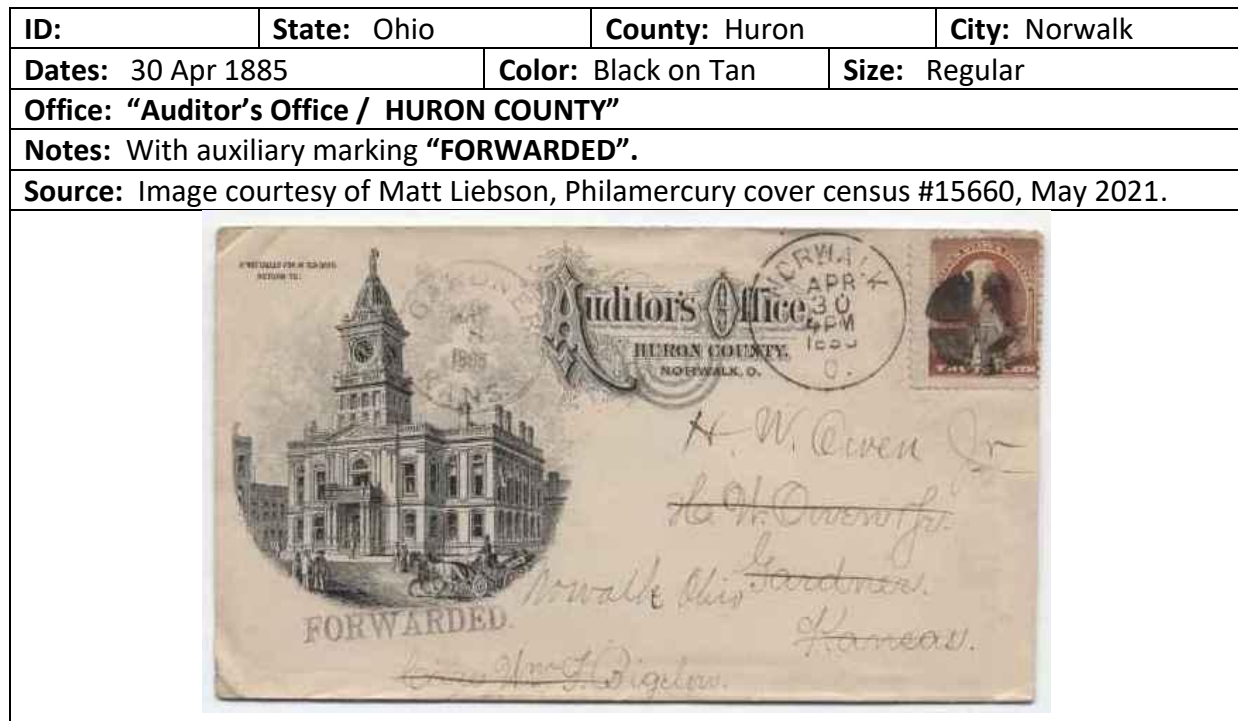 ID: State: Ohio County: Huron City: Norwalk
Dates: 30 Apr 1885 Color: Black on Tan Size: Regular
Office: “Auditor’s Office / HURON COUNTY”
Notes: With auxiliary marking “FORWARDED”.
Source: Image courtesy of Matt Liebson, Philamercury cover census #15660, May 2021.
IF NOT CALLED FOR IN TEN DAYS
RETURN TO:
Auditor's Office,
HURON COUNTY.
NORWALK, O.
NORWALK
APR
30
4PM
O.
H. W. Owen Jr
H. W. Owen Jr.
Gardner.
Norwalk Ohio
Kansas.
FORWARDED.
Wm S. Bigelow.